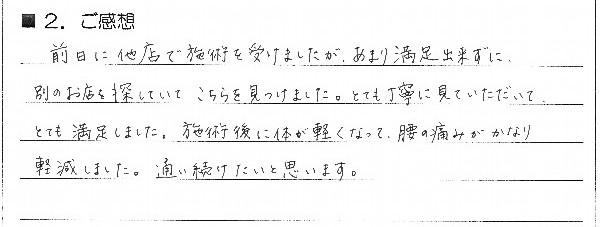 ■ 2. ご感想
前日に他店で施術を受けましたが、あまり満足出来ずに、
別のお店を探していて こちらを見つけました。とても丁寧に見ていただいて、
とても満足しました。施術後に体が軽くなって、腰の痛みがかなり
軽減しました。通い続けたいと思います。